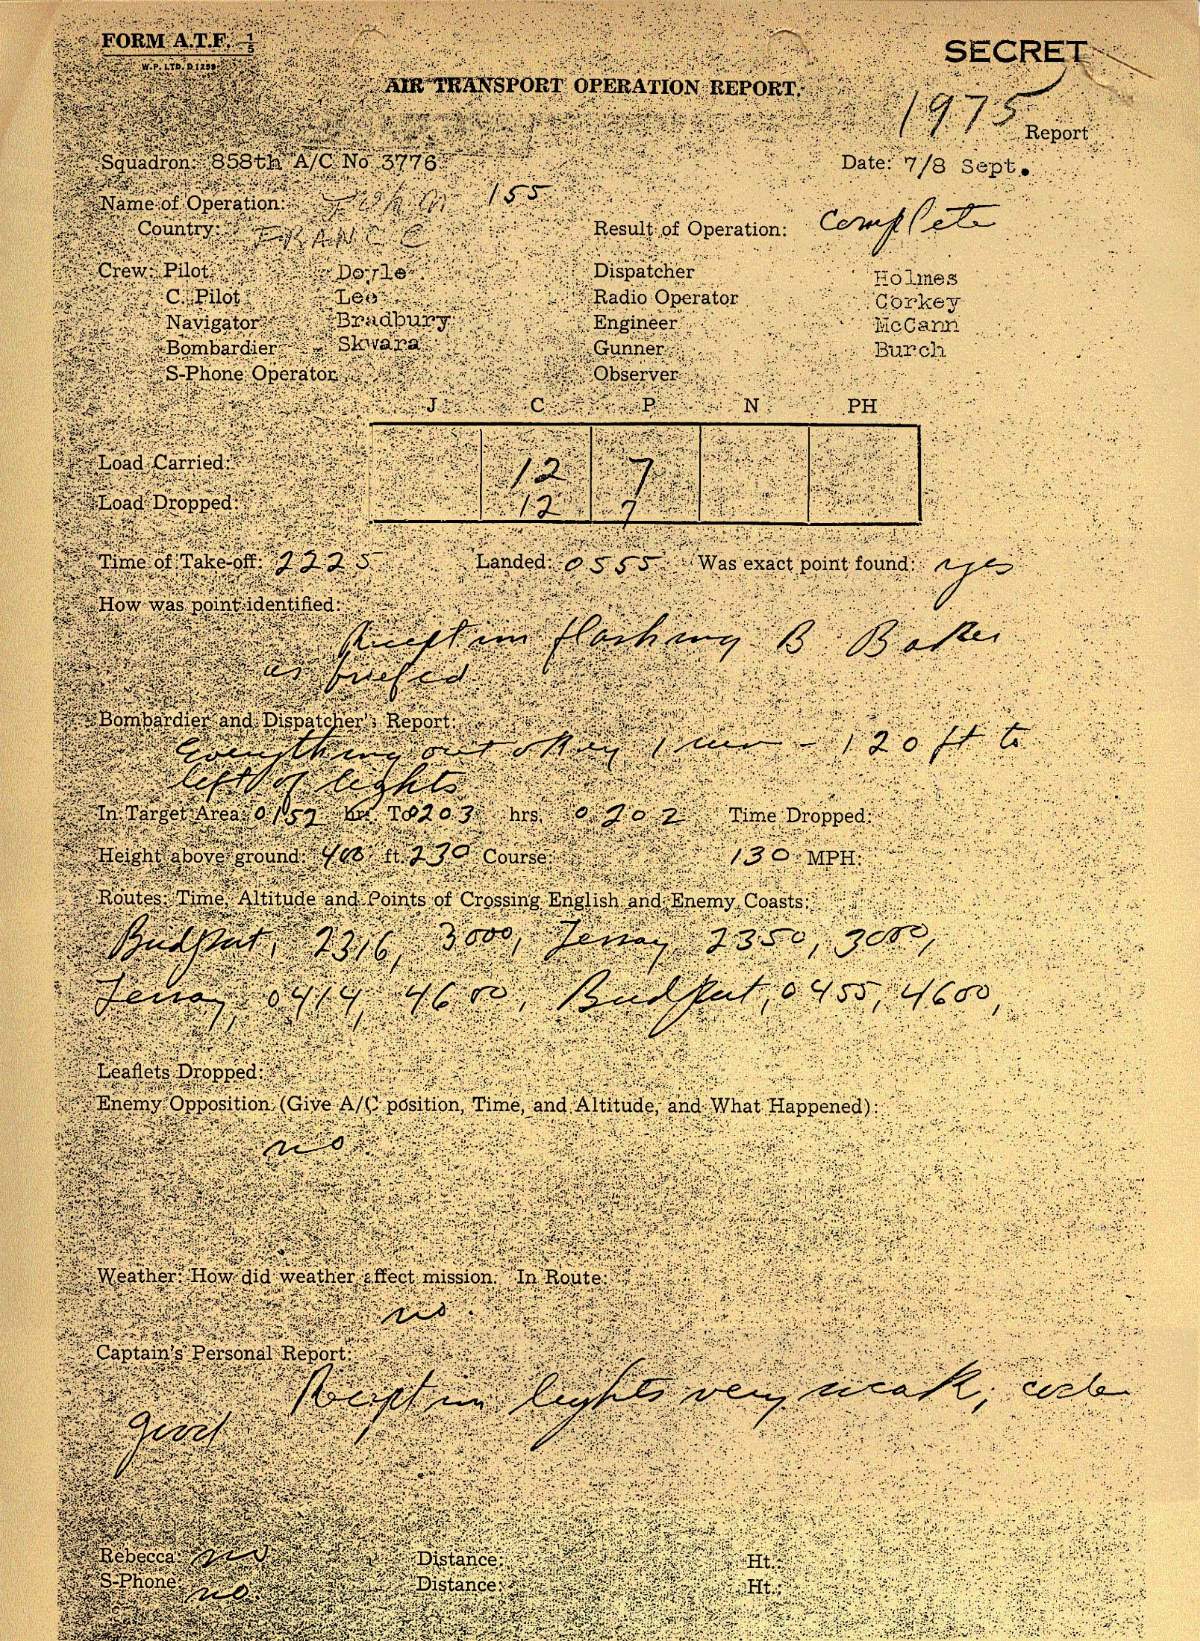 FORM A.T.F. 1/5
SECRET
W.P. LTD. D1259
AIR TRANSPORT OPERATION REPORT.
1975 Report
Squadron: 858th A/C No 3776 Date: 7/8 Sept.
Name of Operation: 155
Country: FRANCE Result of Operation: complete
Crew: Pilot Doyle Dispatcher Holmes
C. Pilot Lee Radio Operator Corkey
Navigator Bradbury Engineer McCann
Bombardier Skwara Gunner Burch
S-Phone Operator Observer
J C P N PH
Load Carried: 12 7
Load Dropped: 12 7
Time of Take-off: 2225 Landed: 0555 Was exact point found: yes
How was point identified:
Reception flashing B Baker
as briefed
Bombardier and Dispatcher's Report:
Everything out okey 1 run - 120 ft to
left of lights
In Target Area: 0152 hr. To 0203 hrs. 0202 Time Dropped:
Height above ground: 400 ft. 230 Course: 130 MPH:
Routes: Time, Altitude and Points of Crossing English and Enemy Coasts:
Bridport, 2316, 3000, Jersey 2350, 3000,
Jersey, 0414, 4600, Bridport, 0455, 4600,
Leaflets Dropped:
Enemy Opposition (Give A/C position, Time, and Altitude, and What Happened):
no.
Weather: How did weather affect mission. In Route:
no.
Captain's Personal Report:
Reception lights very weak, code
good
Rebecca: no Distance: Ht.:
S-Phone: no. Distance: Ht.: